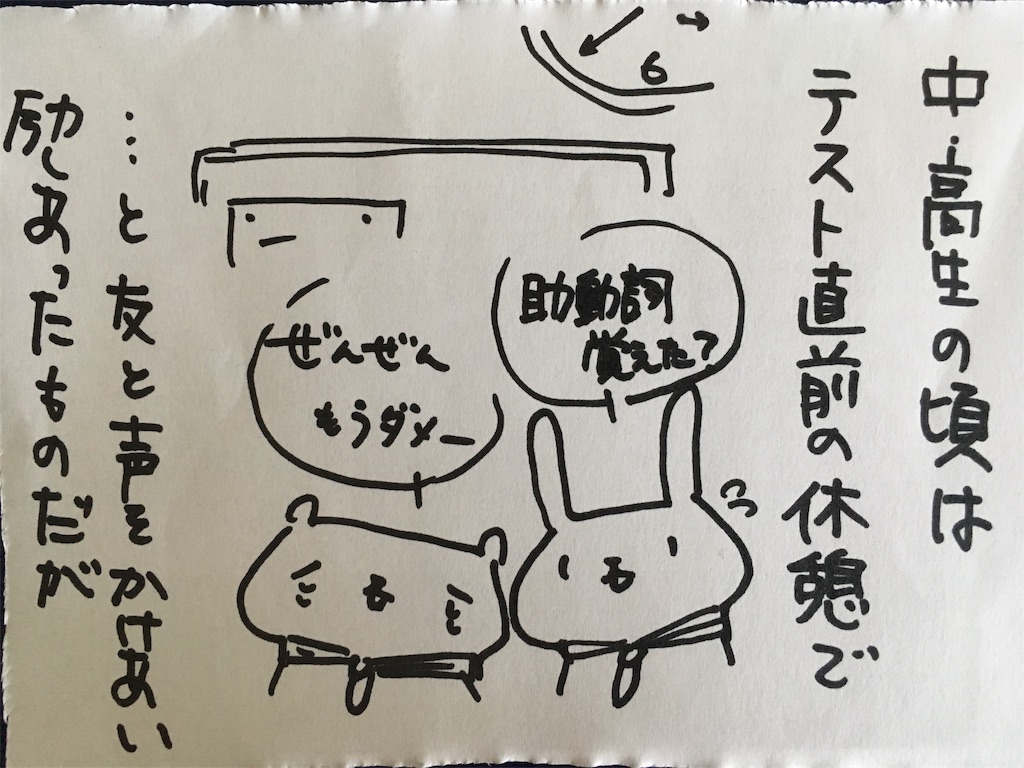 中・高生の頃は
テスト直前の休憩で
6
助動詞
覚えた?
ぜんぜん
もうダメー
…と友と声をかけあい
励しあったものだが